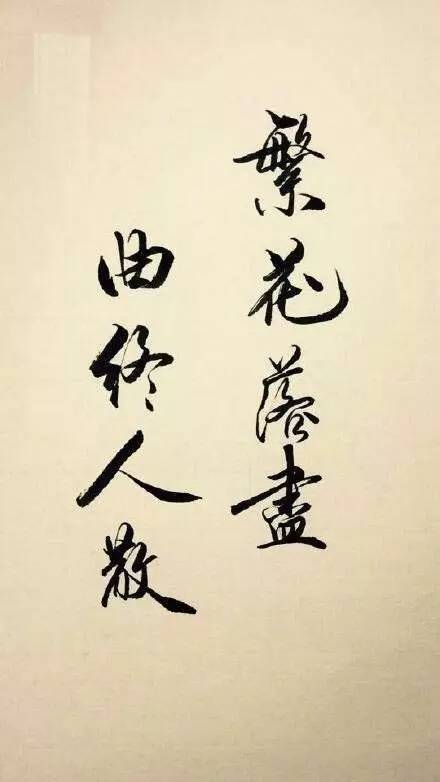 繁花落盡
曲终人散